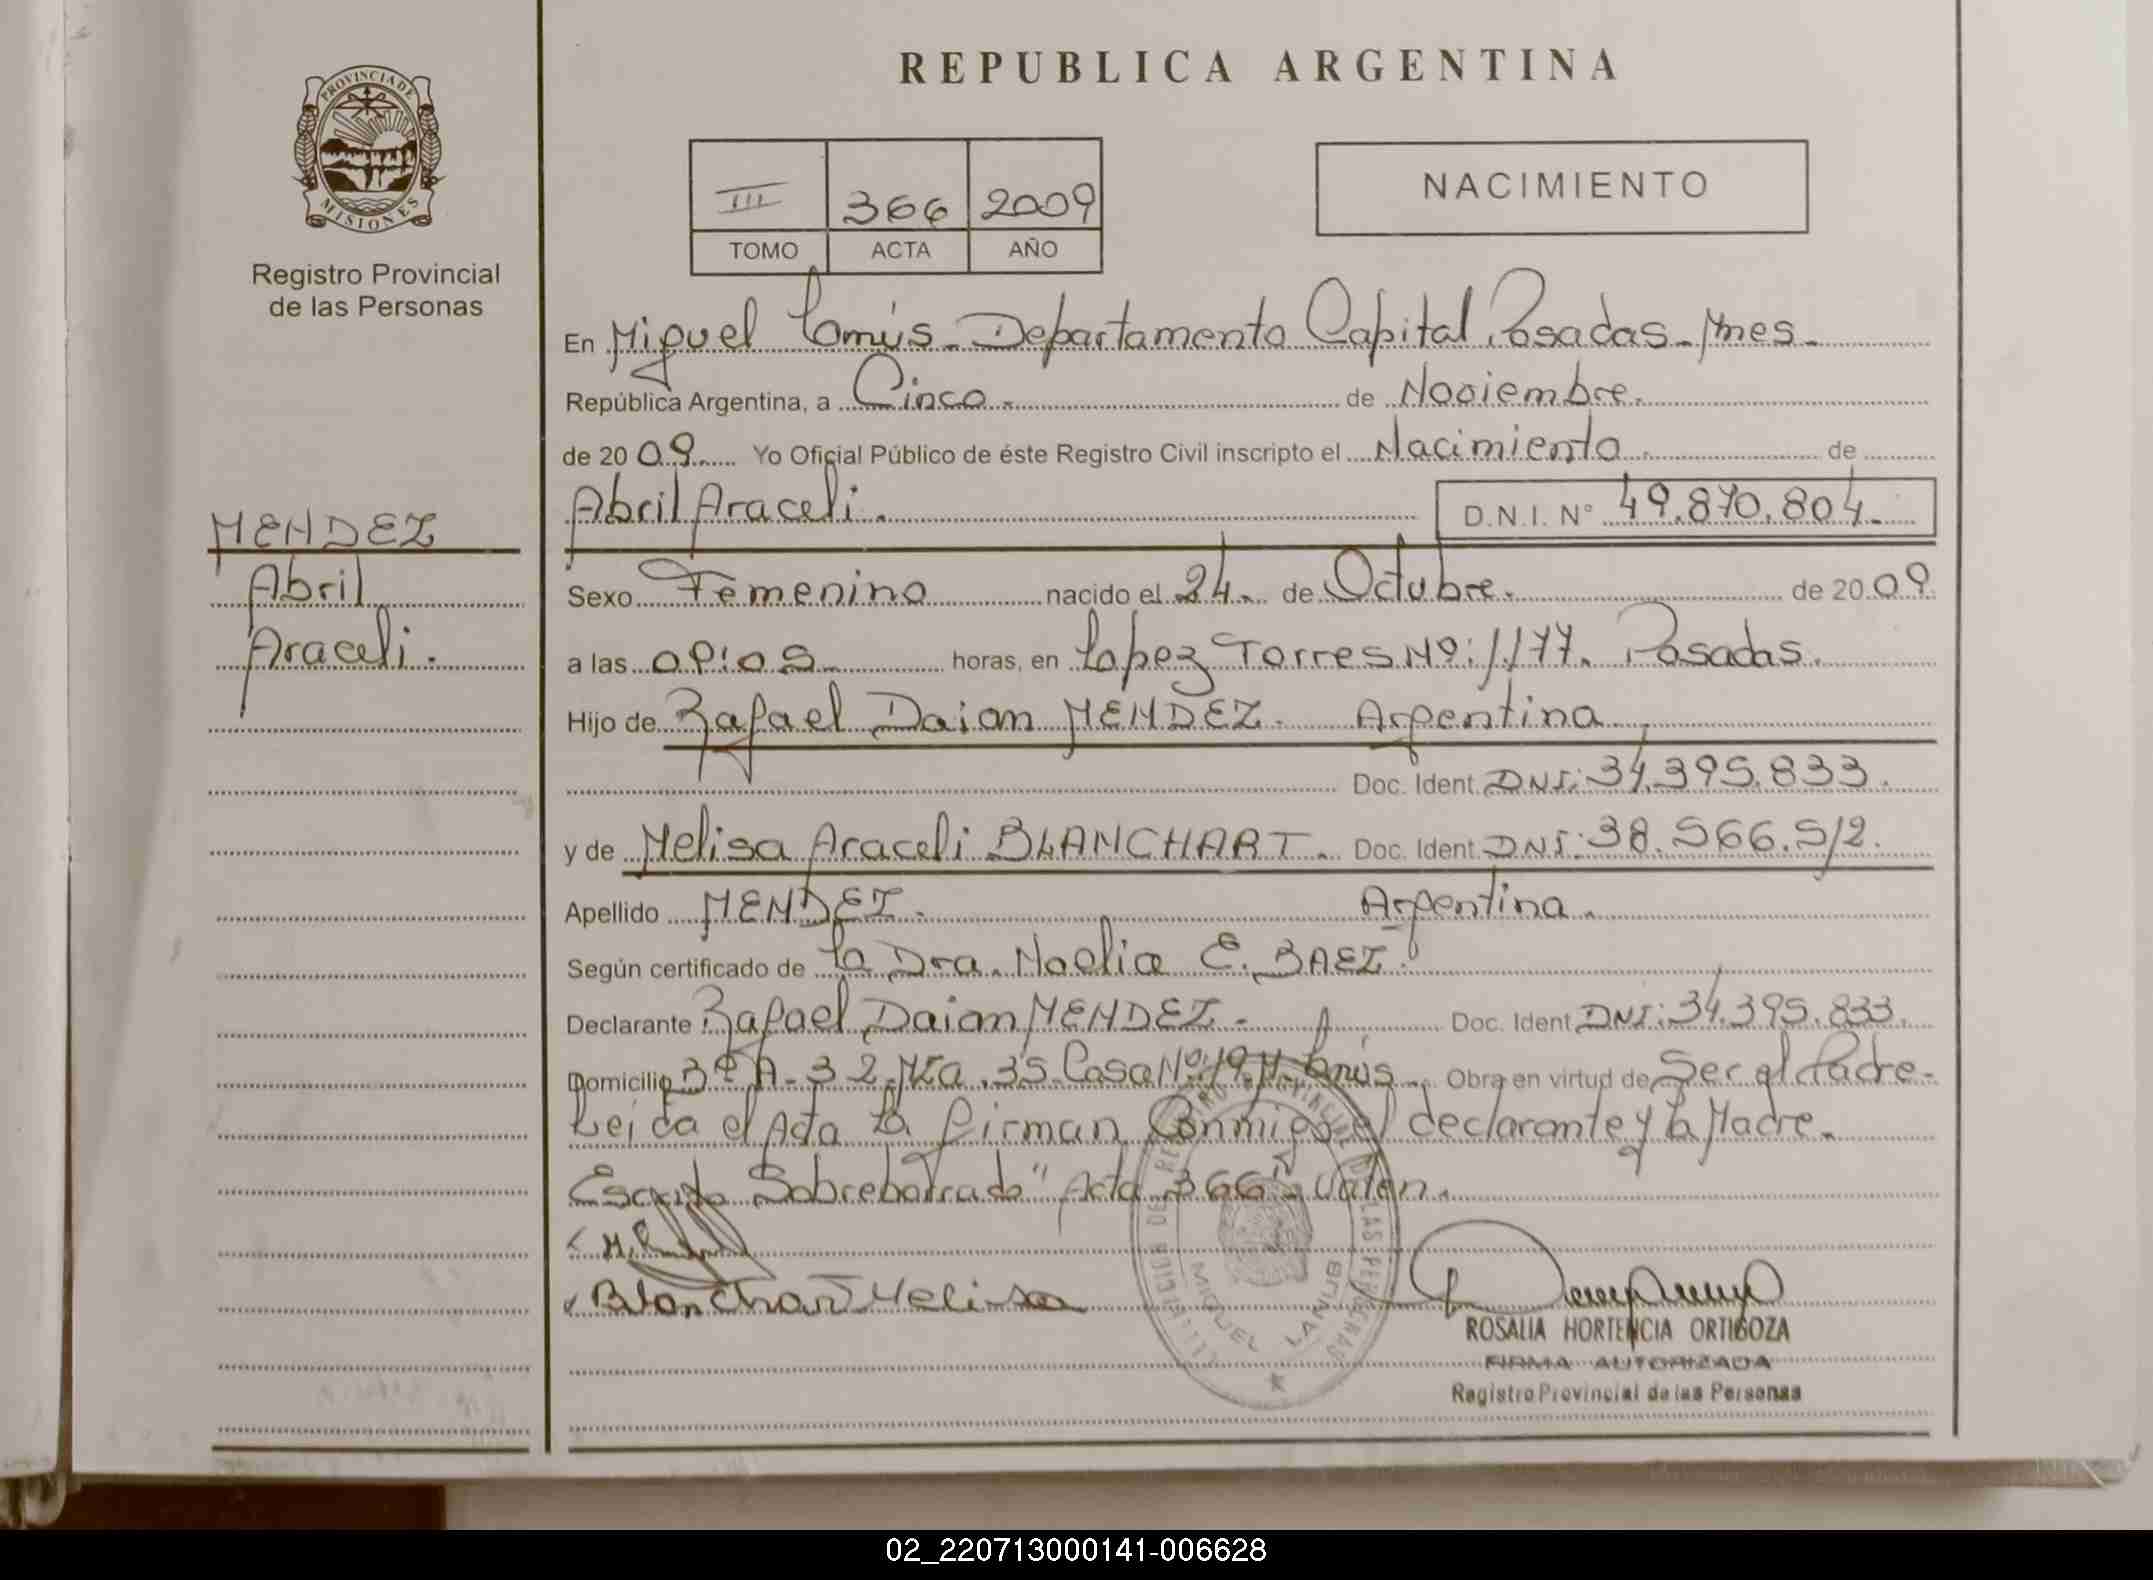 REPUBLICA ARGENTINA
PROVINCIA DE
MISIONES
Registro Provincial
de las Personas
III 366 2009
TOMO ACTA AÑO
NACIMIENTO
En Miguel Lanús - Departamento Capital Posadas - Mnes.
República Argentina, a Cinco. de Noviembre.
de 2009. Yo Oficial Público de éste Registro Civil inscripto el Nacimiento de
Abril Araceli. D.N.I. Nº 49.870.804.
MENDEZ
Abril
Araceli.
Sexo Femenino nacido el 24. de Octubre. de 2009.
a las horas, en Lopez Torres Nº: 1177. Posadas.
Hijo de Rafael Daian MENDEZ. Argentina
Doc. Ident. DNI: 34.395.833.
y de Melisa Araceli BLANCHART. Doc. Ident. DNI: 38.566.512.
Apellido MENDEZ. Argentina.
Según certificado de La Dra. Noelia E. BAEZ.
Declarante Rafael Daian MENDEZ - Doc. Ident DNI: 34.395.833.
Domicilio A-32. Mza. 35. Casa Nº 19 M. Lanús. Obra en virtud de Ser el Padre.
Leida el Acta La firman Conmigo el declarante y la Madre.
Escrito Sobreborrado "Acta 366" Valen.
Blanchart Melisa
MIGUEL LANUS
ROSALIA HORTENCIA ORTIGOZA
FIRMA AUTORIZADA
Registro Provincial de las Personas
02_220713000141-006628